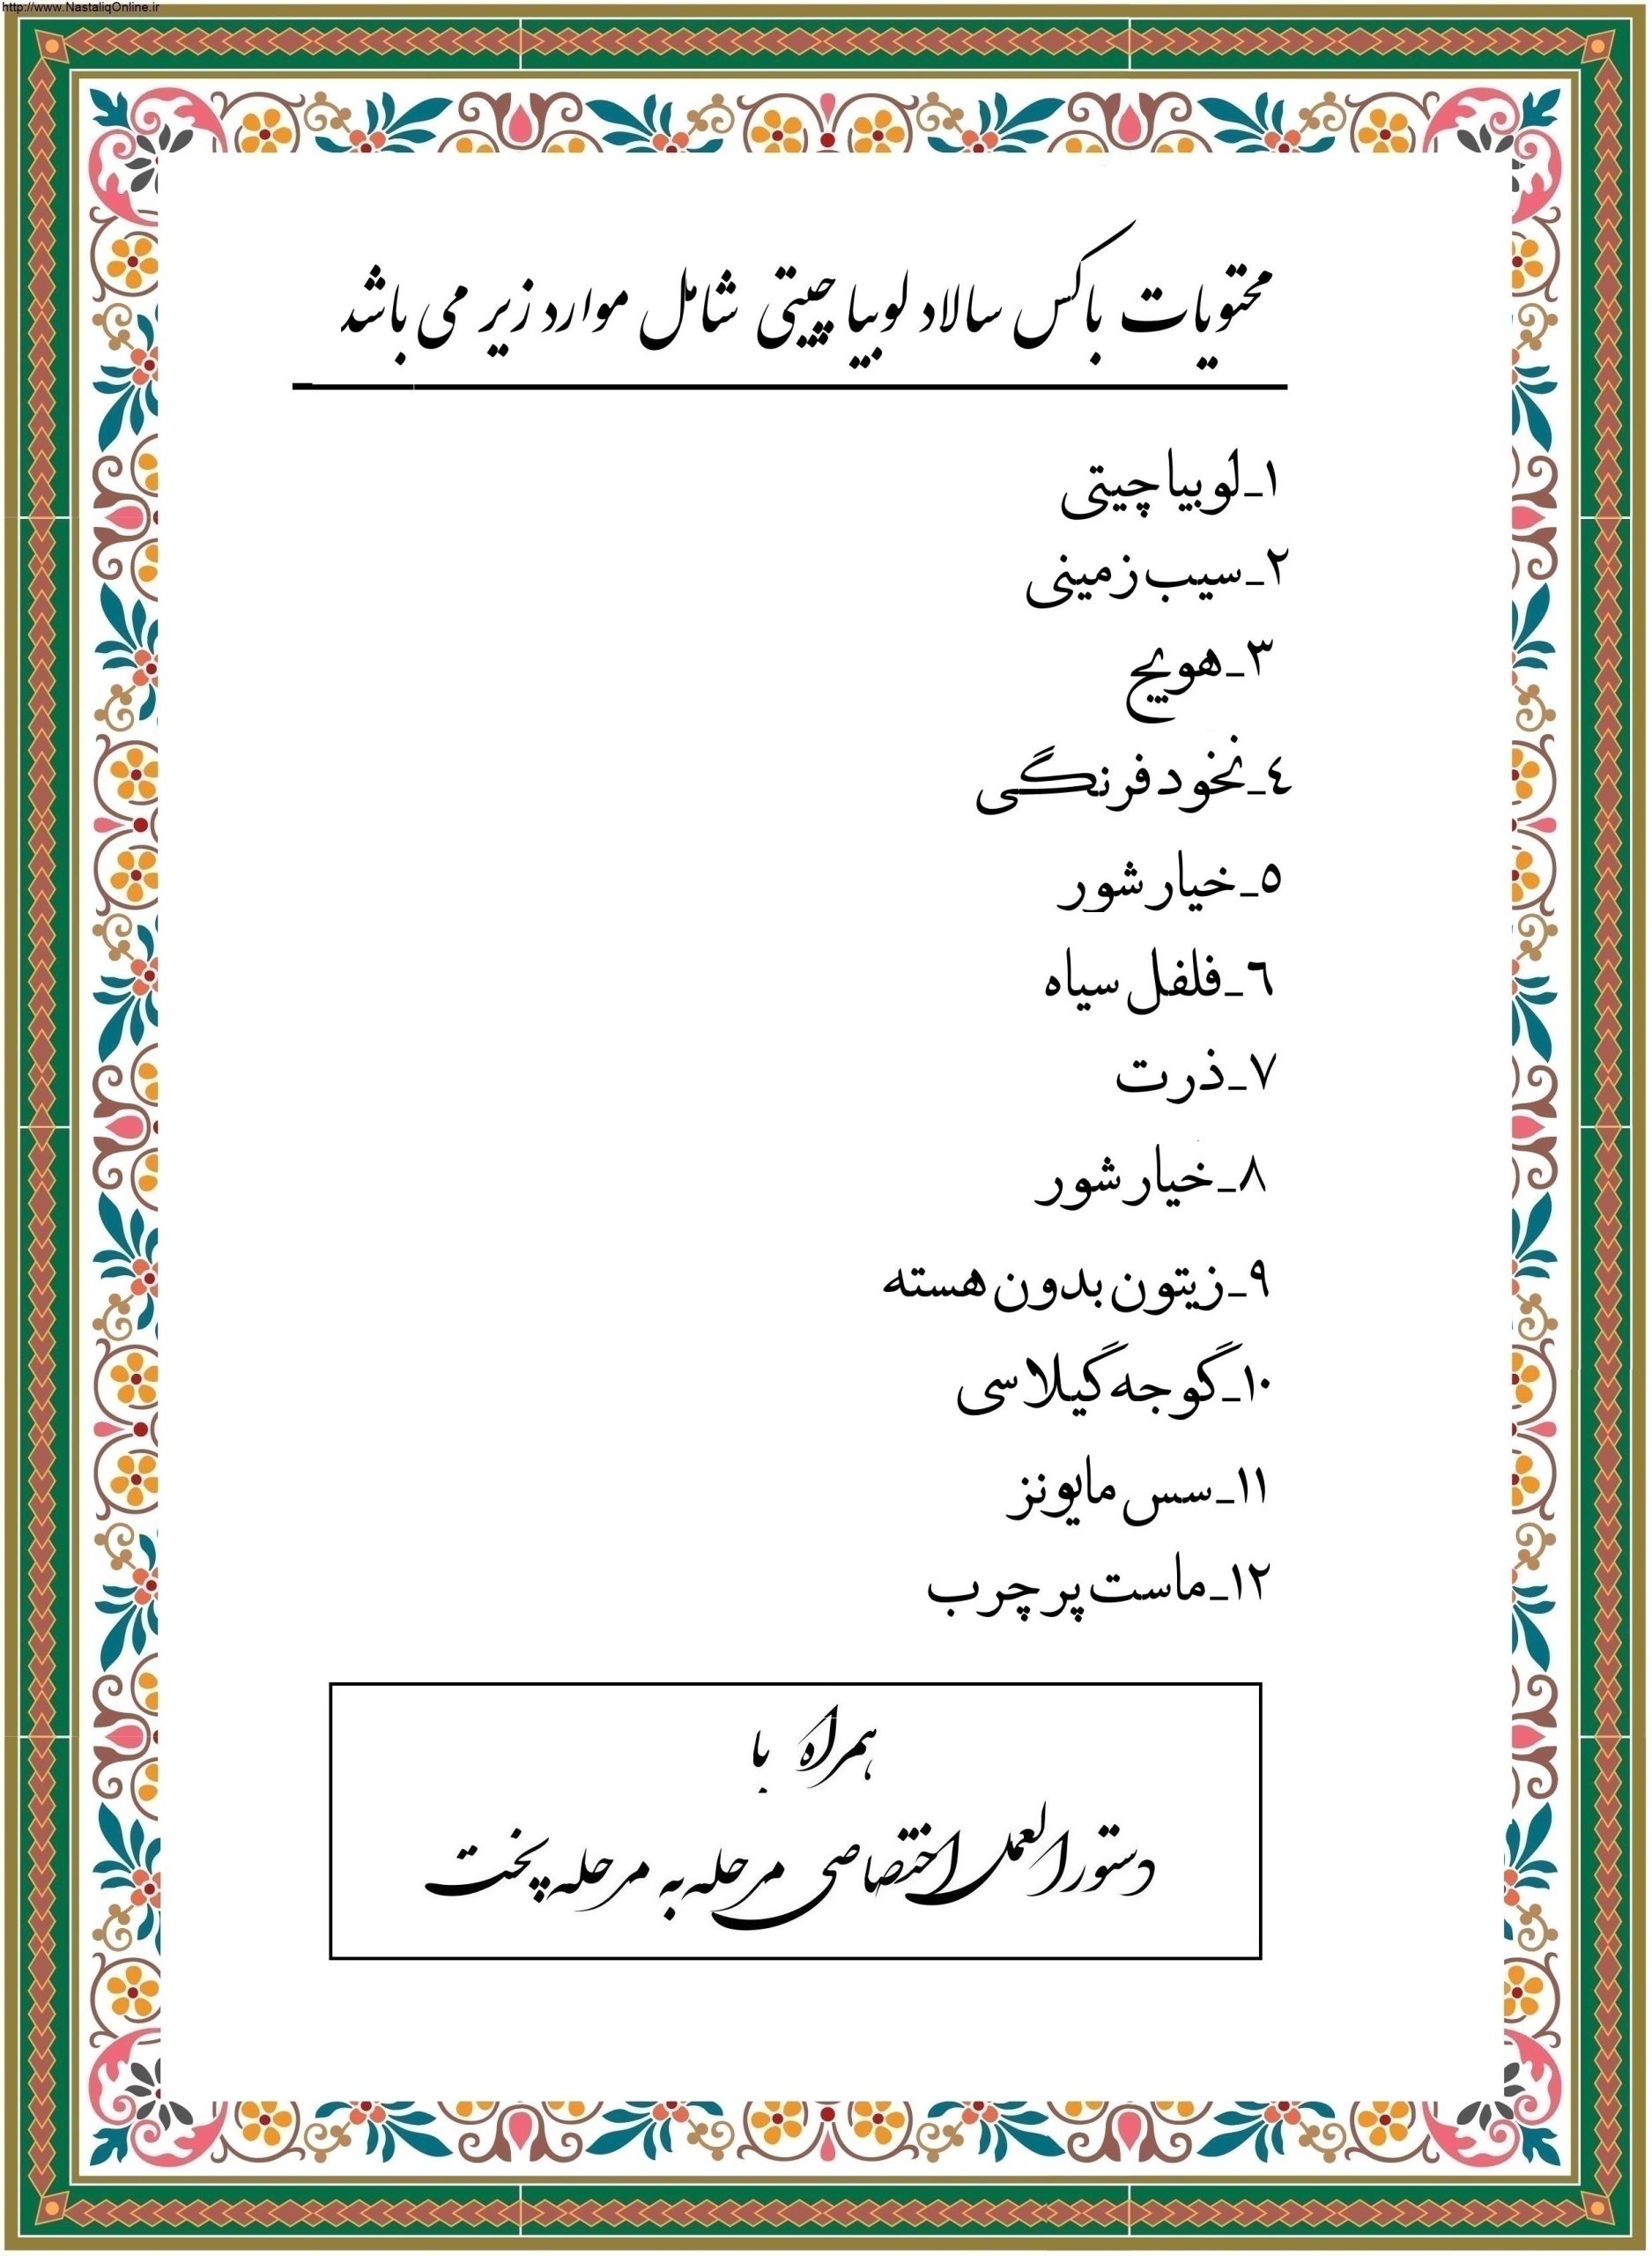 http://www.NastaliqOnline.ir
محتویات باکس سالاد لوبیا چیتی شامل موارد زیر می باشد
١_لوبیا چیتی
٢_سیب زمینی
٣_هویج
٤_نخود فرنگی
٥_خیار شور
٦_فلفل سیاه
٧_ذرت
٨_خیار شور
٩_زیتون بدون هسته
١٠_گوجه گیلاسی
١١_سس مایونز
١٢_ماست پر چرب
همراه با
دستورالعمل اختصاصی مرحله به مرحله پخت